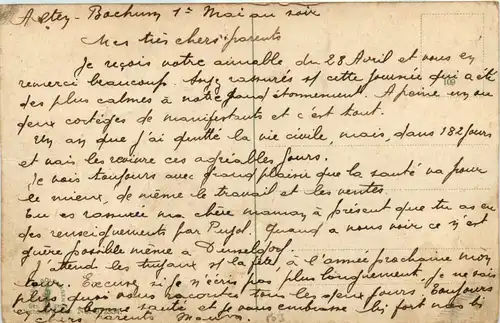 Bochum 1er Mai au soir
Mes très chers parents
Je reçois votre aimable du 28 Avril et vous en
remercie beaucoup. Soyez rassurés s/ cette journée qui a été
des plus calmes à notre grand étonnement. A peine un ou
deux cortèges de manifestants et c'est tout.
Un an que j'ai quitté la vie civile, mais, dans 182 jours
et vais les revivre ces agréables jours.
Je vois toujours avec grand plaisir que la santé va pour
le mieux, de même le travail et les ventes.
Tu es rassurée ma chère maman à présent que tu as eu
des renseignements par Pujol. Quand à nous voir ce n'est
guère possible même à Dusseldorf.
J'attends les tuyaux s/ la fête, à l'année prochaine mon
tour. Excuse si je n'écris pas plus longuement. Je ne sais
plus quoi vous raconter tous les deux jours. Toujours
en très bonne santé et je vous embrasse bi fort mes bi
chers parents